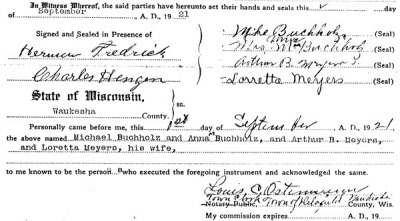 In Witness Whereof, the said parties have hereunto set their hands and seals this day
of September, A. D., 1921
Signed and Sealed in Presence of
Mike Buchholz (Seal)
Herman Fredrick
Mrs. Buchholz (Seal)
Arthur B. Meyers (Seal)
Charles Hengen
Lorretta Meyers (Seal)
State of Wisconsin,
Waukesha County.
ss.
Personally came before me, this 1st day of September, A. D., 1921.
the above named Michael Buchholz and Anna Buchholz, and Arthur B. Meyers,
and Loretta Meyers, his wife,
to me known to be the person s who executed the foregoing instrument and acknowledged the same.
Louis C.
Town Clerk Town of Delafield Waukesha
Notary Public, County, Wis.
My commission expires A. D., 19